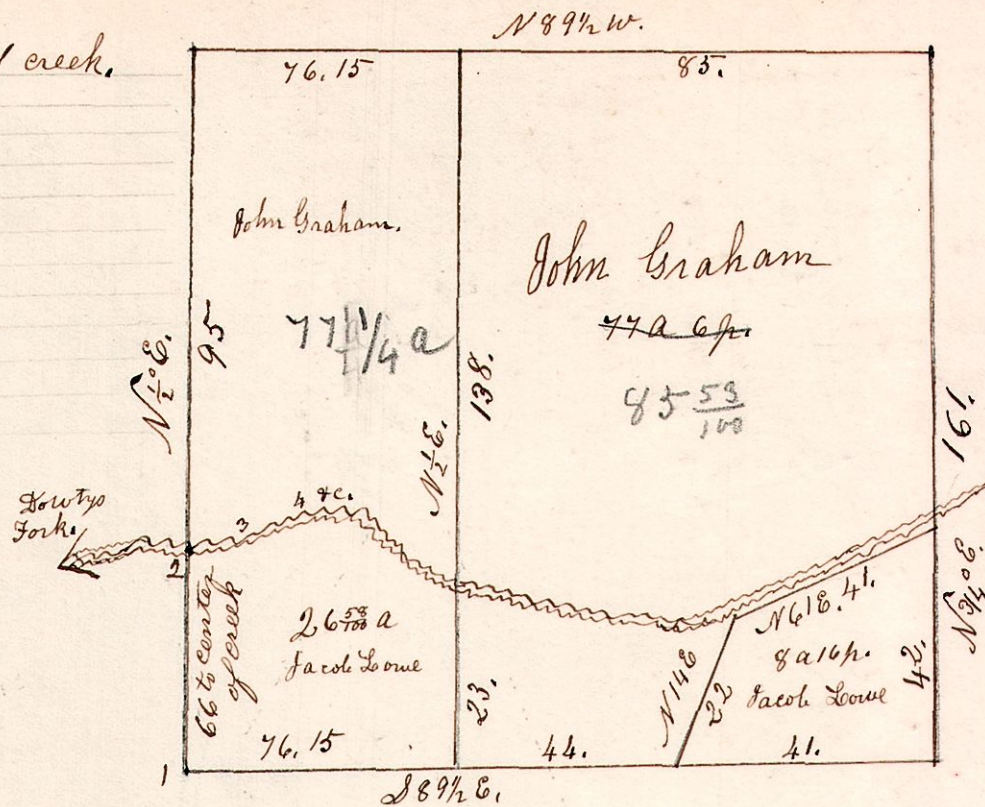 creek.
N 89½ W.
76.15
85.
John Graham.
John Graham
77 a 6 p.
77 ¼ a
85 53/100
N ½° E.
95
N ½ E.
138.
161.
Dowtys
Fork.
2
3
4 &c.
66 to center
of creek
26 58/100 a
Jacob Lowe
N 61 E. 41.
8 a 16 p.
Jacob Lowe
N 14 E
22
23.
42.
N 3/4° E.
1
76.15
44.
41.
S 89½ E.